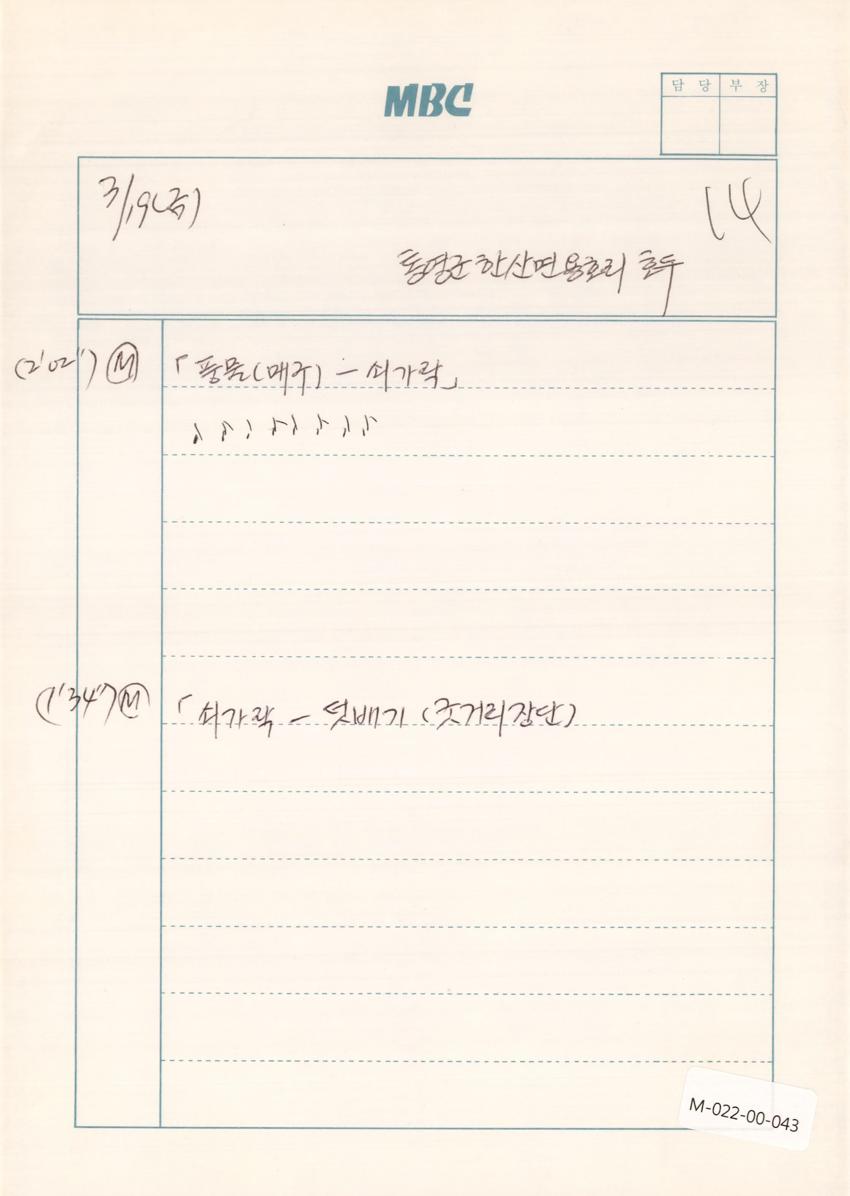 MBC
담당 부장
3/19(금)
14
통영군 한산면 용호리 호두
(2'02") Ⓜ 「풍물(매구) - 쇠가락」
♪ ♪ ♪ ♪ ♪ ♪ ♪ ♪
(1'34") Ⓜ 「쇠가락 - 덧배기 (굿거리장단)
M-022-00-043